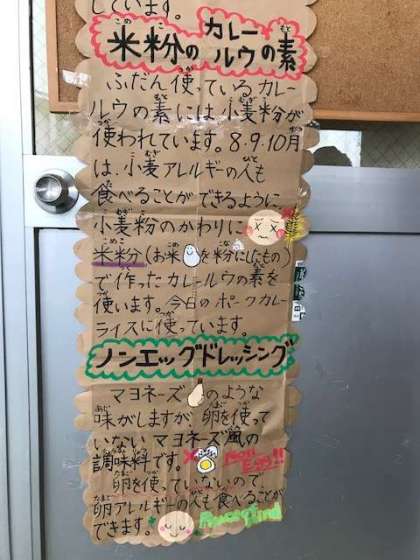 しています。
米粉のカレールウの素
ふだん使っているカレー
ルウの素には小麦粉が
使われています。8.9.10月
は、小麦アレルギーの人も
食べることができるように、
小麦粉のかわりに
米粉(お米を粉にしたもの)
で作ったカレールウの素を
使います。今日のポークカレー
ライスに使っています。
ノンエッグドレッシング
マヨネーズのような
味がしますが、卵を使って
いないマヨネーズ風の
調味料です。
Non Egg!!
卵を使っていないので、
卵アレルギーの人も食べることが
できます。